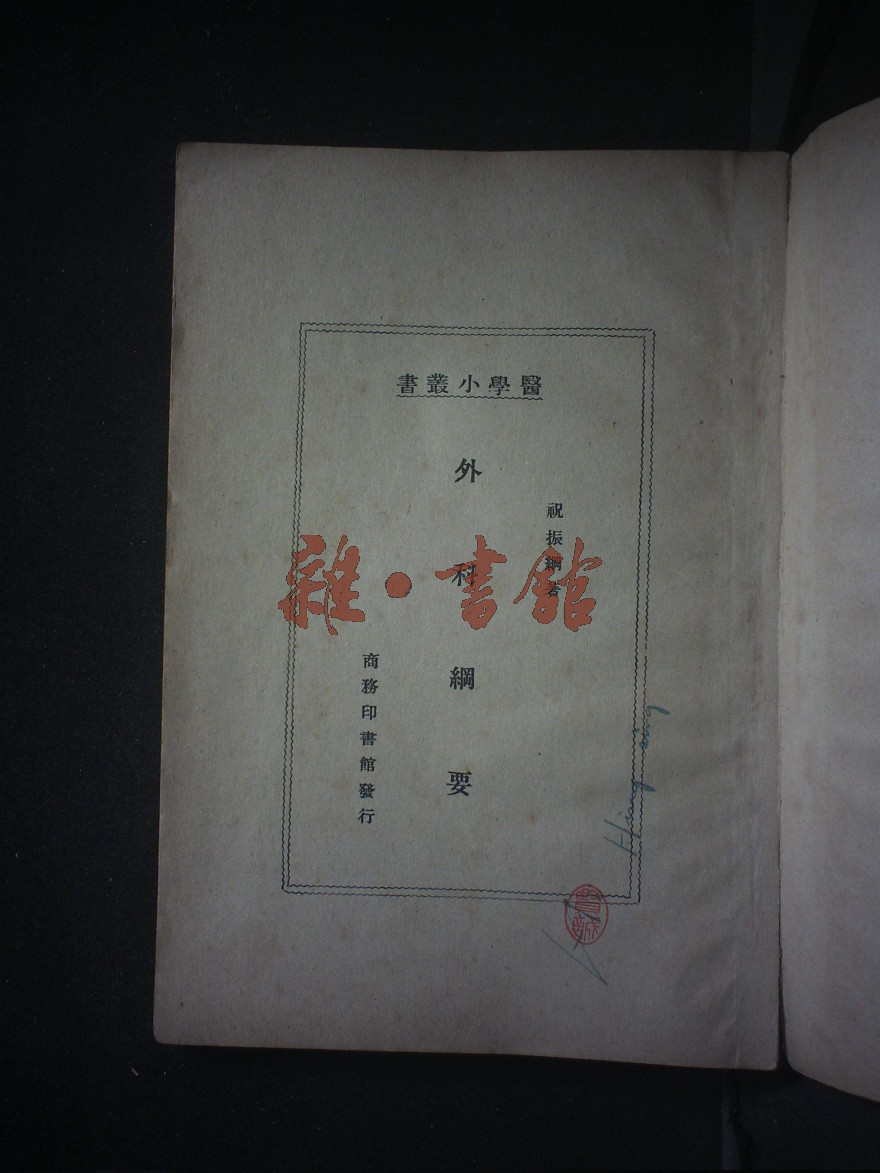 醫學小叢書
祝振綱著
外科綱要
商務印書館發行
雜·書館